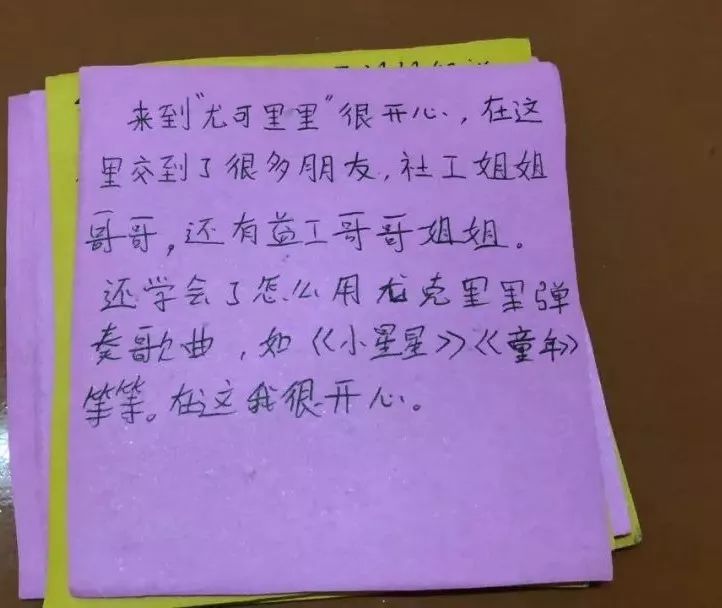 来到"尤可里里"很开心,在这
里交到了很多朋友,社工姐姐
哥哥,还有益工哥哥姐姐。
还学会了怎么用尤克里里弹
奏歌曲,如《小星星》《童年》
等等。在这我很开心。